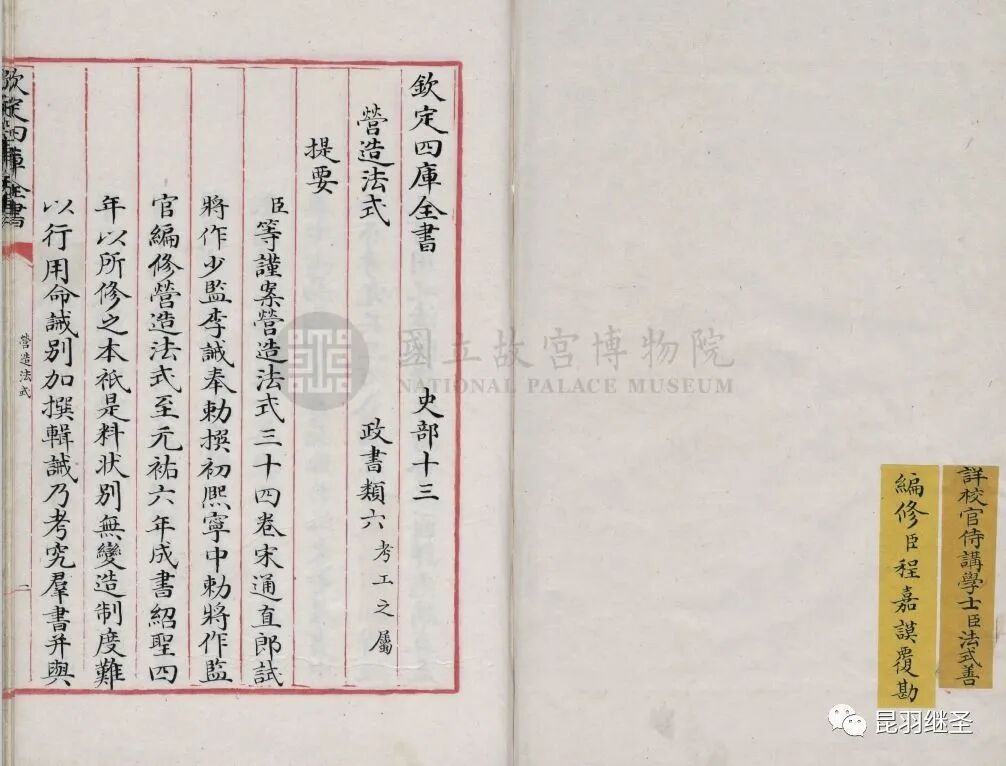 詳校官侍講學士臣法式善
編修臣程嘉謨覆勘
欽定四庫全書 史部十三
營造法式 政書類六 考工之屬
提要
臣等謹案營造法式三十四卷宋通直郎試
將作少監李誡奉勅撰初熙寧中勅將作監
官編修營造法式至元祐六年成書紹聖四
年以所修之本祇是料狀別無變造制度難
以行用命誡別加撰輯誡乃考究羣書并與
欽定四庫全書
營造法式
國立故宮博物院
NATIONAL PALACE MUSEUM
昆羽继圣